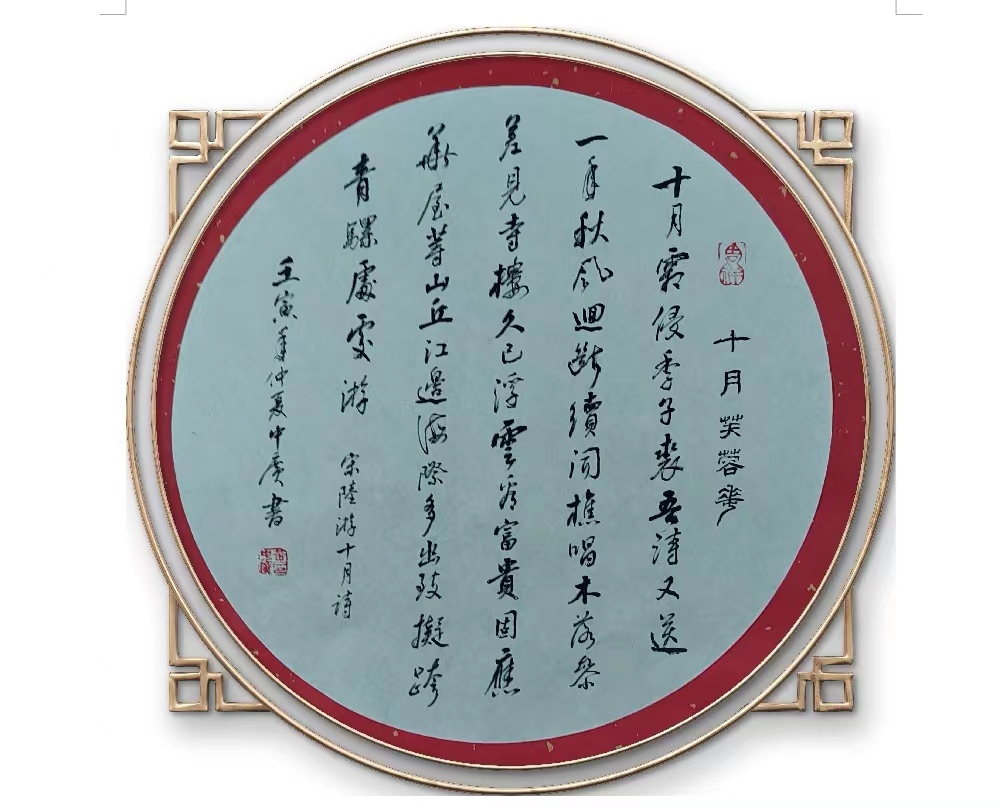 十月芙蓉花
十月霜侵季子裘吾詩又送
一年秋風迴斷續聞樵唱木落參
差見寺樓久已浮雲看富貴固應
華屋等山丘江邊海際多幽致擬跨
青騾處處游 宋陸游十月詩
壬寅年仲夏中廣書